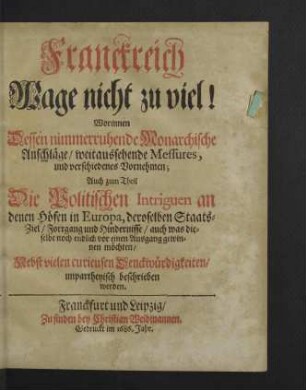 Franckreich
Wage nicht zu viel!
Worinnen
Dessen nimmerruhende Monarchische
Anschläge/ weitaussehende Messures,
und verschiedenes Vornehmen;
Auch zum Theil
Die Politischen Intriguen an
denen Höfen in Europa, deroselben Staats-
Ziel/ Fortgang und Hindernisse/ auch was die-
selbe noch endlich vor einen Ausgang gewin-
nen möchten/
Nebst vielen curieusen Denckwürdigkeiten/
unpartheyisch beschrieben
werden.
Franckfurt und Leipzig/
Zu finden bey Christian Weidmannen.
Gedruckt im 1686. Jahr.